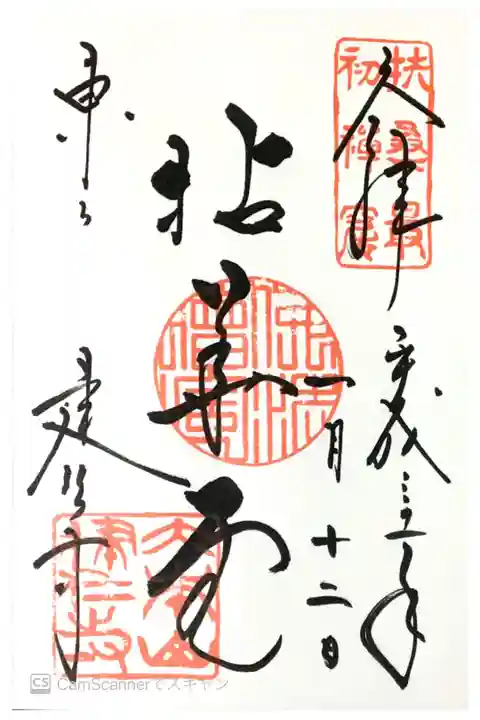 扶桑最
初禅窟
奉拝
平成三十一年
一月十二日
拈華堂
東山
建仁寺
大本山
建仁寺
CS CamScannerでスキャン